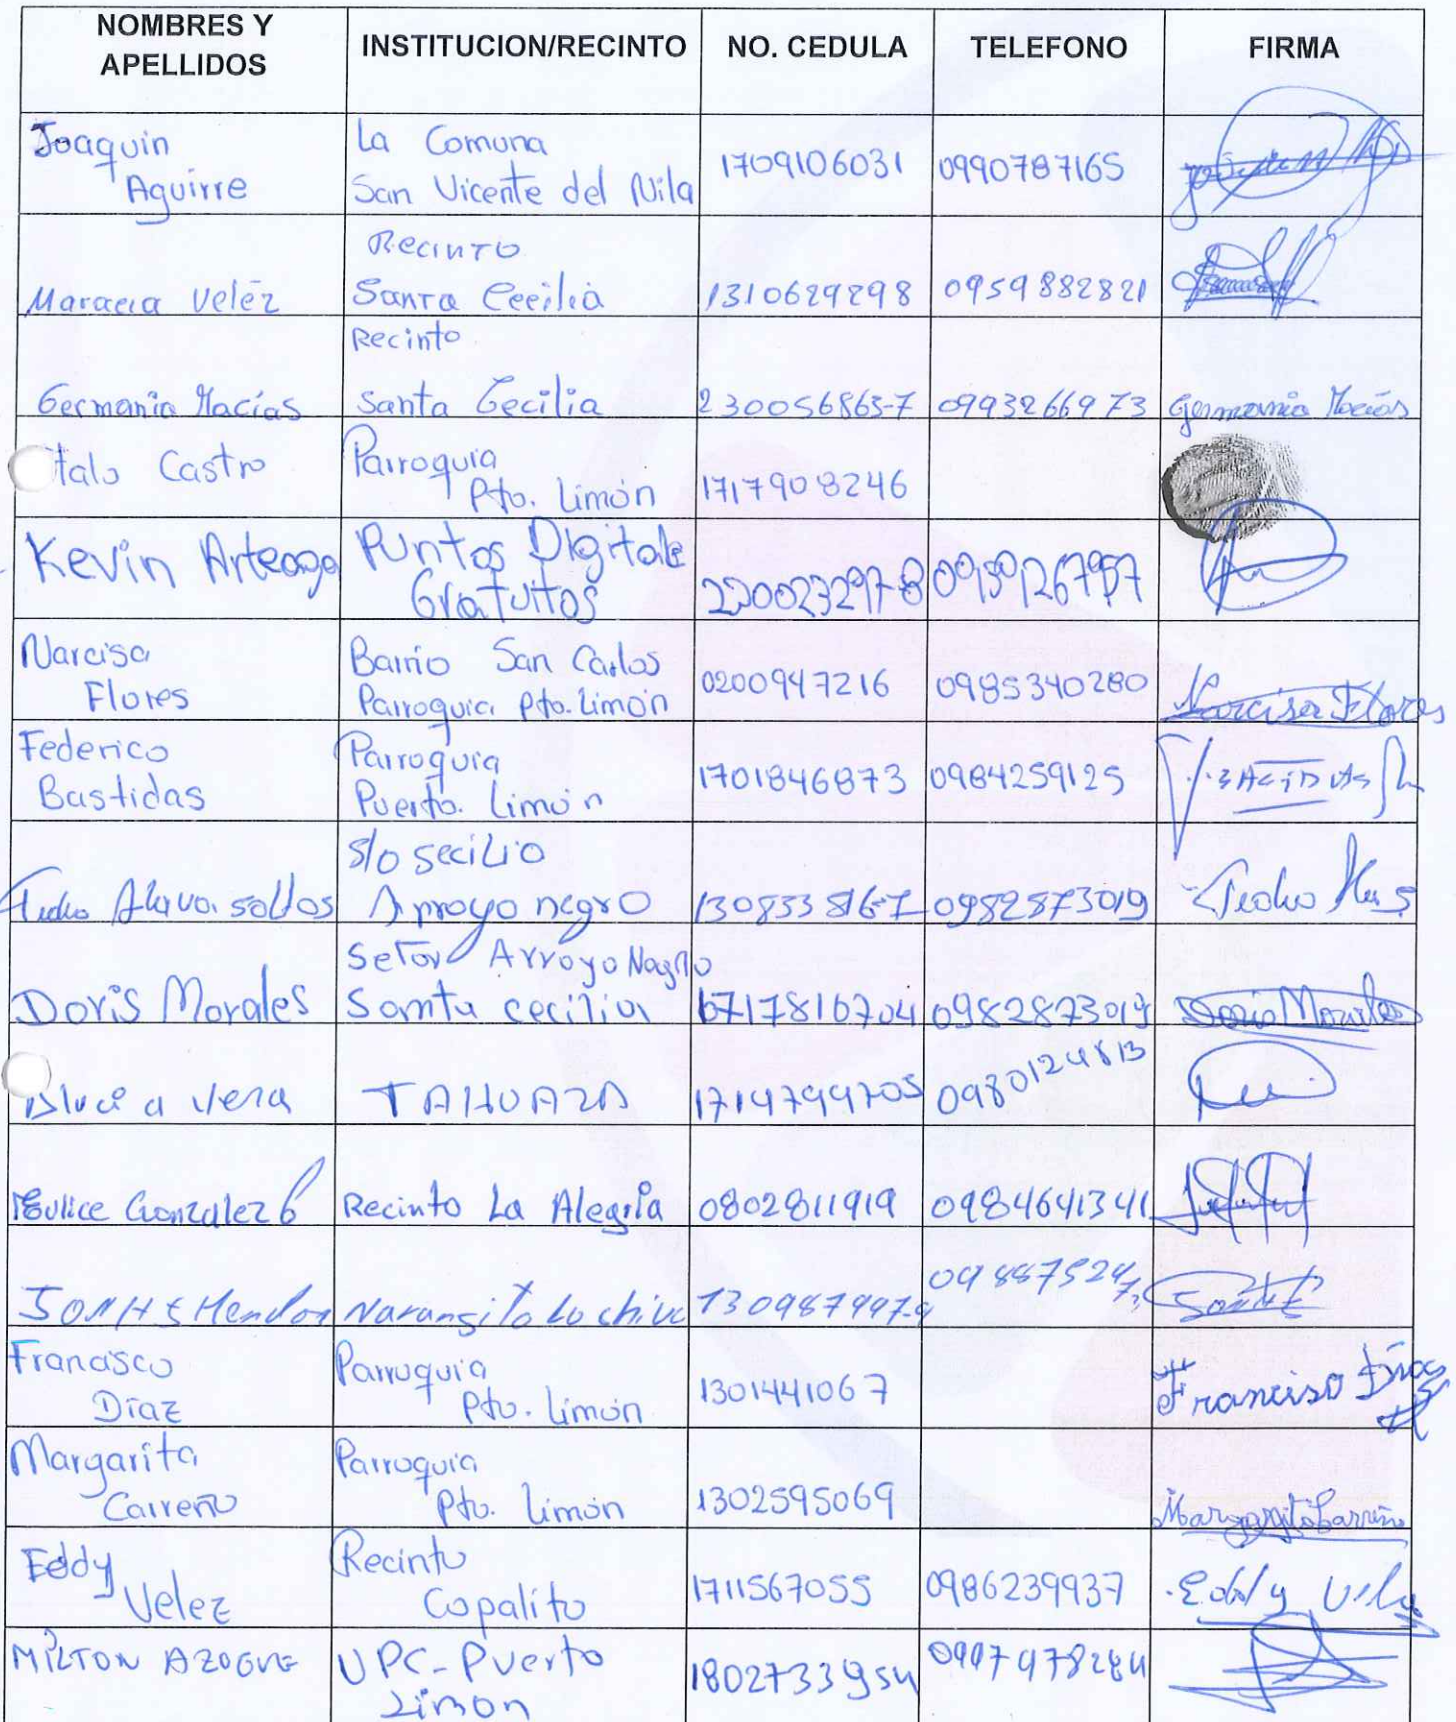 NOMBRES Y APELLIDOS INSTITUCION/RECINTO NO. CEDULA TELEFONO FIRMA
Joaquin Aguirre La Comuna San Vicente del Nila 1709106031 0990787165
Velez Recinto Santa Cecilia 1310629298 0959882821
Germania Macías Recinto Santa Cecilia 230056863-7 0993266973 Germania Macías
talo Castro Parroquia Pto. Limón 1717908246
Kevin Arteaga Puntos Digitale Gratuitos
Narcisa Flores Barrio San Carlos Parroquia Pto. Limón 0200947216 0985340280 Narcisa Flores
Federico Bastidas Parroquia Puerto. Limón 1701846873 0984259125
s/o secilio Arroyo negro 130833816-7 0982873019
Doris Morales Setor Arroyo Nagro Santa cecilia 0982873019 Doris Morales
Vera TAHUAZA 0980124813
Eulice Gonzalez Recinto La Alegria 0802811919 0984641341
Narangito
Francisco Díaz Parroquia Pto. Limón 1301441067 Francisco Díaz
Margarita Carreño Parroquia Pto. Limón 1302595069 Margarita Carreño
Eddy Velez Recinto Copalito 1711567055 0986239937 Eddy
MILTON AZOGUE UPC-Puerto Limon 1802733954